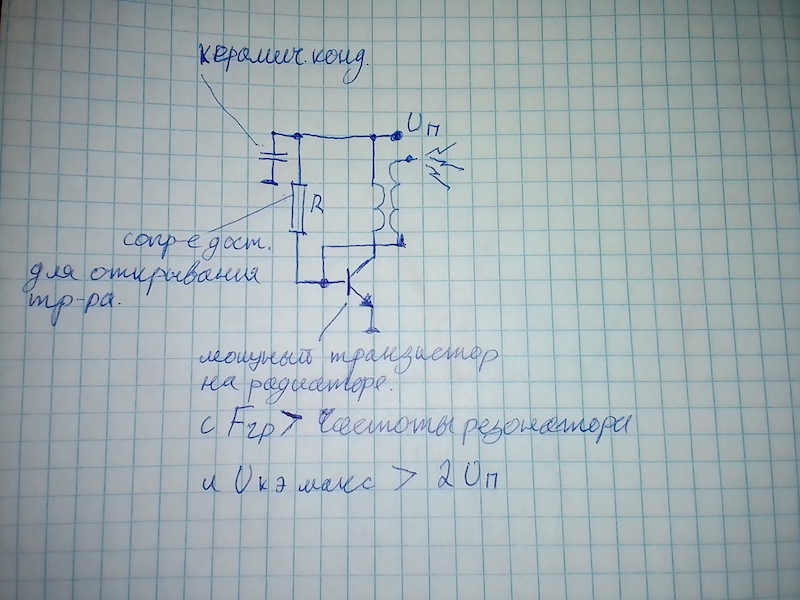 керамич. конд.
Uп
R
сопр-е дост.
для открывания
тр-ра.
мощный транзистор
на радиаторе.
с Fгр > частоты резонатора
и Uкэ макс > 2 Uп